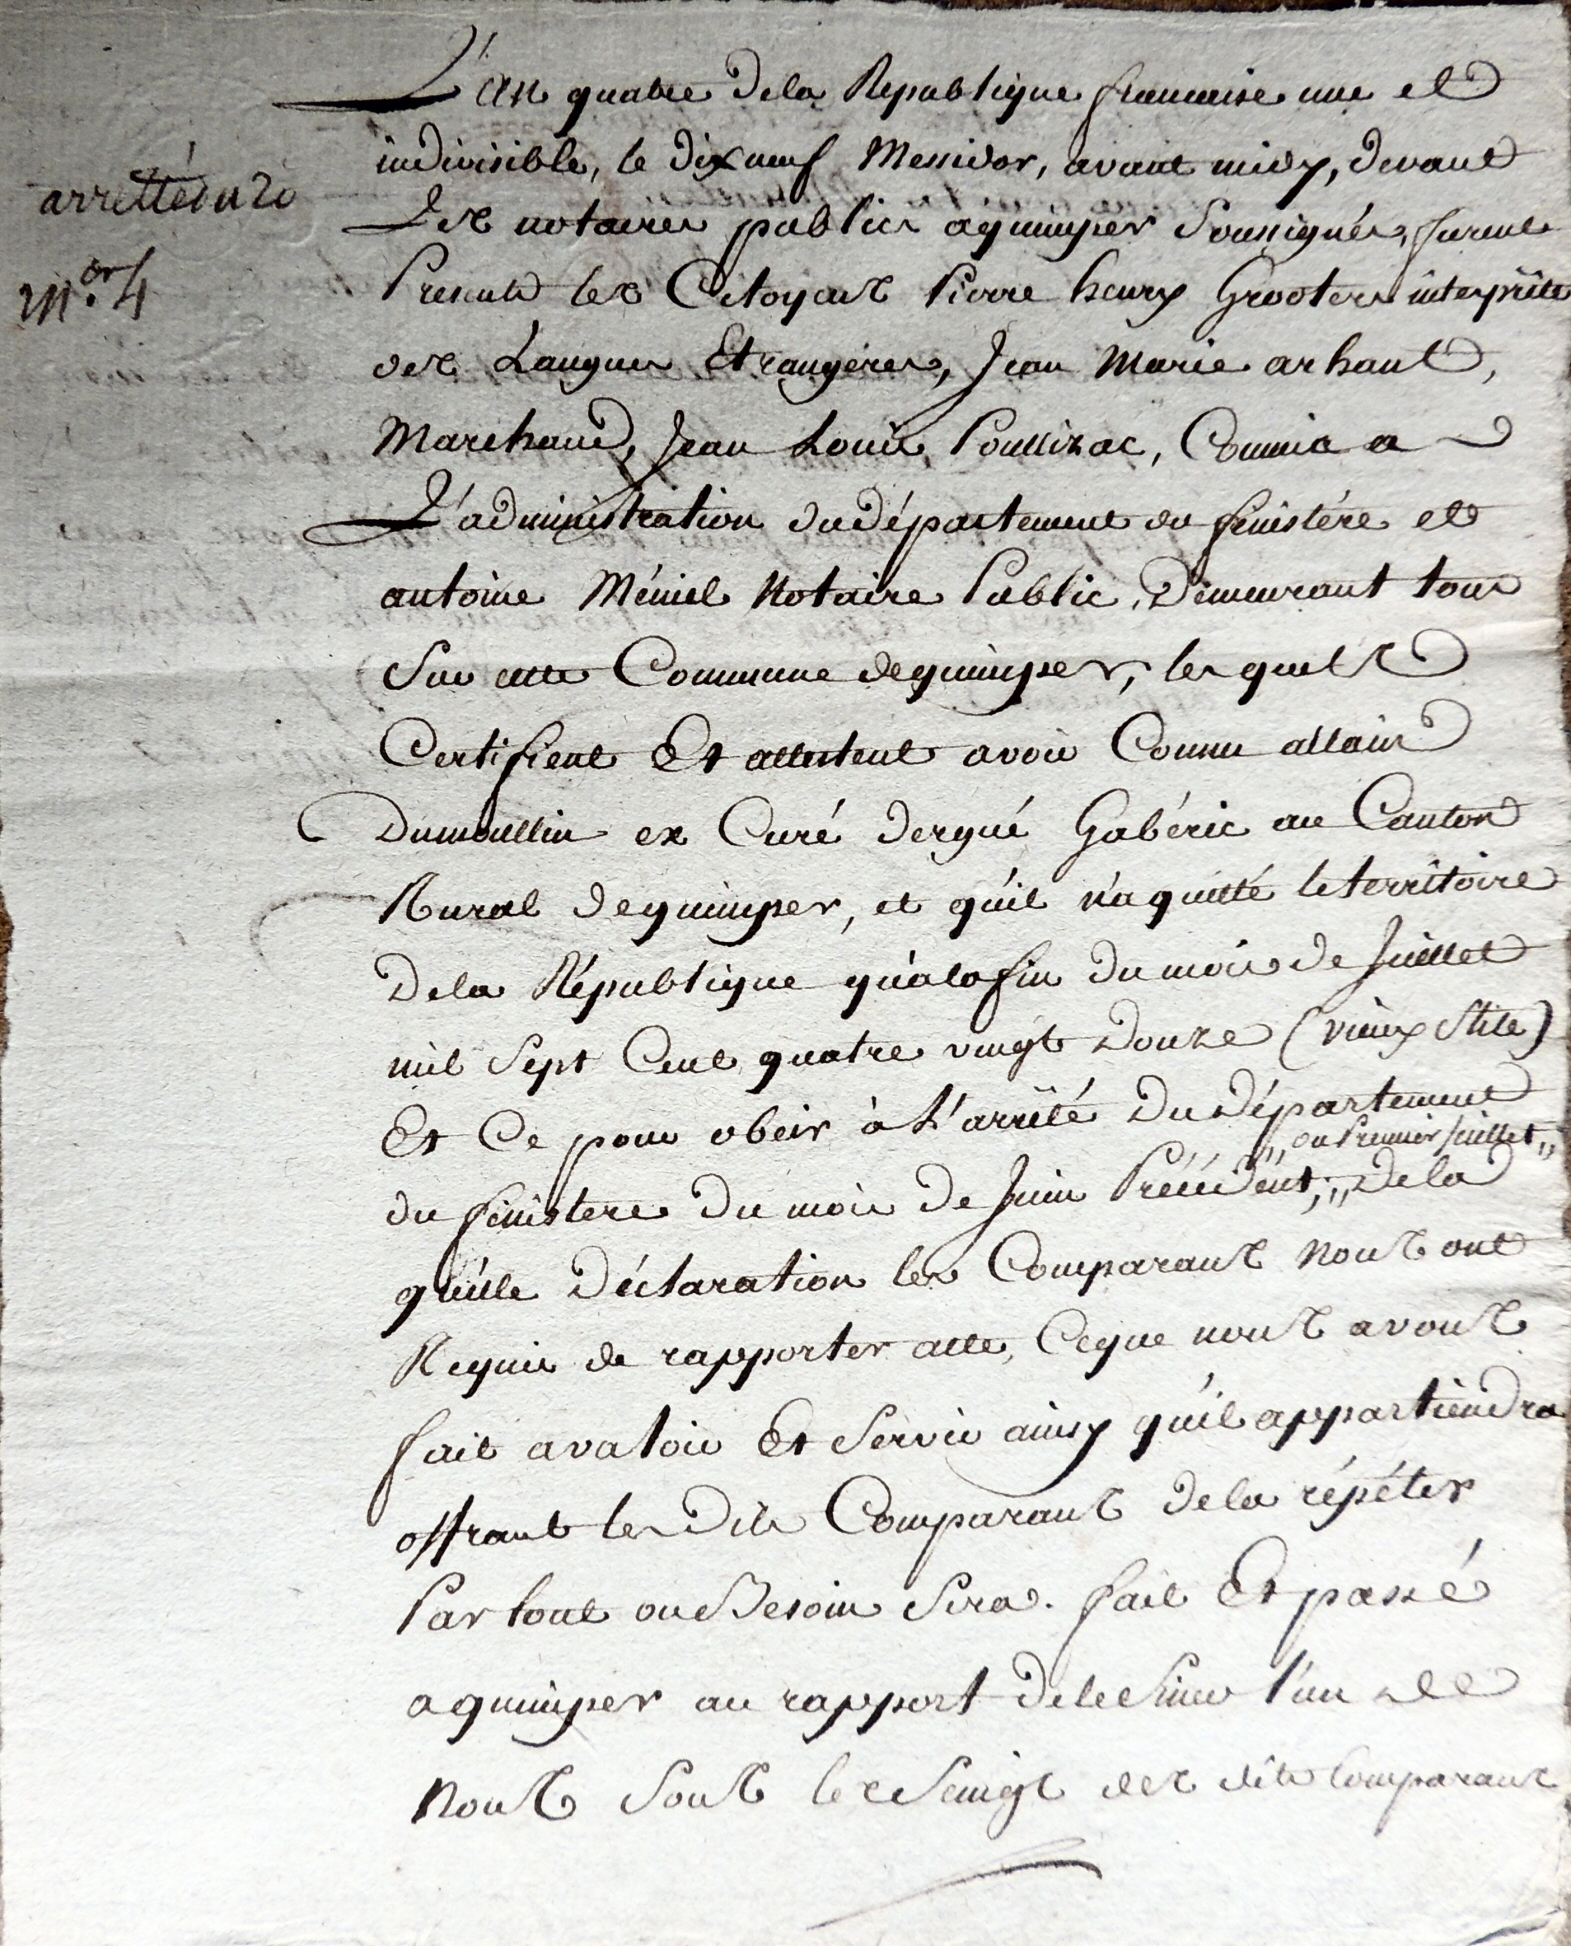 L'an quatre dela Republique francaise une et
indivisible, le dix neuf Messidor, avant midy, devant
Les notaires publics aquimper Soussignés, furent
Presents les Citoyens Pierre henry Grooters interprête
des Langues Etrangéres, Jean Marie arhant,
Marchand, Jean Louis Poullizac, Commis a
L'administration du département du finistére et
antoine Méniel Notaire Public, Demeurant tous
Sur cette Commune dequimper, les quels
Certifient Et attestent avoir Connu allain
Dumoullin ex Curé dergué Gabéric au Canton
Rural dequimper, et qu'il n'a quitté leterritoire
Dela République qu'alafin du mois de Juillet
mil Sept Cent quatre vingt Douze (vieux Stile)
Et Ce pour obeir à L'arrêté Du Département
,, ou Premier Juillet ,,
du finistere Du mois de Juin Précédent, ,, Dela
qu'elle Déclaration les Comparans Nous ont
Requis de rapporter acte, Ceque nous avons
fait avaloir Et Servir ainsy qu'il appartiendra
offrant les Dits Comparans dela répéter
Partout ou Besoin Sera. fait Et passé
aquimper au rapport de le Siner l'un de
Nous Sous les Seings des dits Comparans
arretté du 20
M.or 4